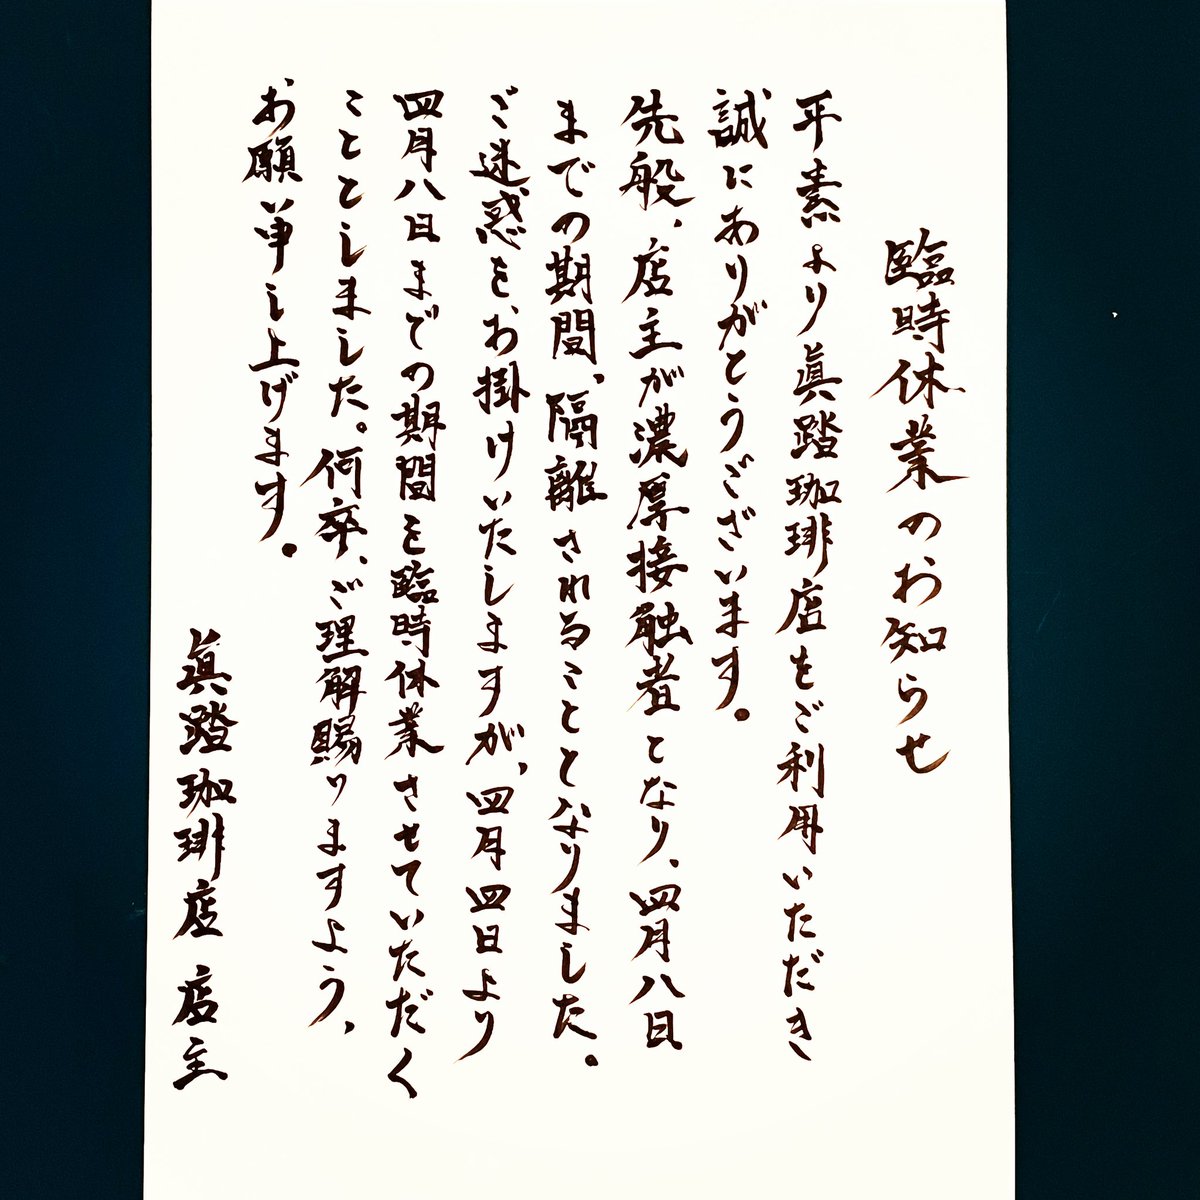 臨時休業のお知らせ
平素より眞踏珈琲店をご利用いただき
誠にありがとうございます。
先般、店主が濃厚接触者となり、四月八日
までの期間、隔離されることとなりました。
ご迷惑をお掛けいたしますが、四月四日より
四月八日までの期間を臨時休業させていただく
こととしました。何卒、ご理解賜りますよう、
お願い申し上げます。
眞踏珈琲店 店主